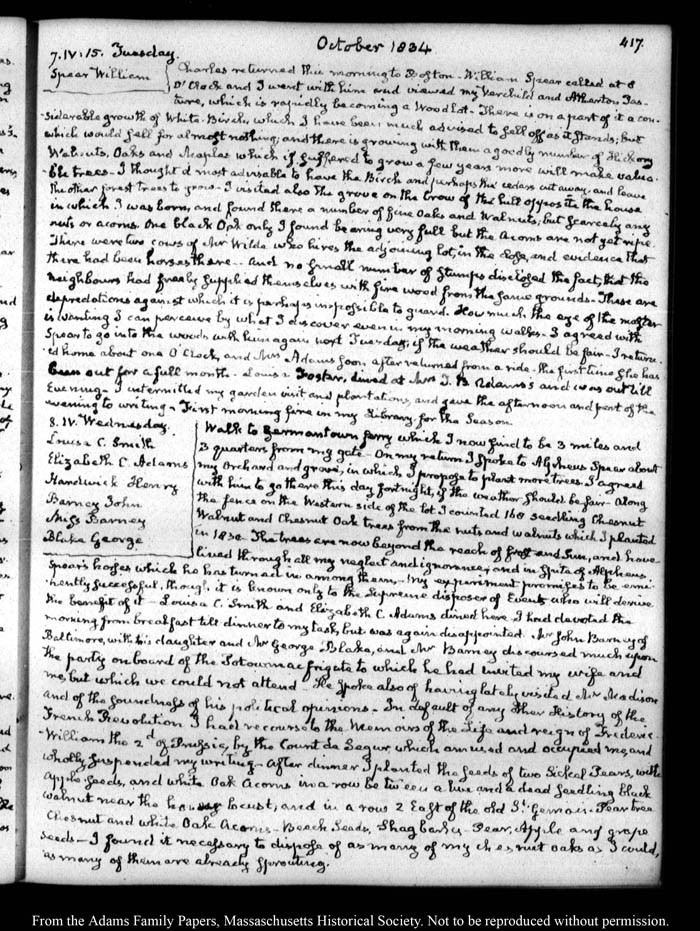 October 1834
417.
7. IV:15. Tuesday.
Spear William
Charles returned this morning to Boston. William Spear called at 8
O'Clock and I went with him and viewed my Verchild and Atherton Pas-
ture, which is rapidly becoming a Wood lot. There is on a part of it a con-
siderable growth of White-Birch, which I have been much advised to sell off as it stands; but
which would sell for almost nothing; and there is growing with them a goodly number of Hickory
Walnuts, Oaks and Maples which if suffered to grow a few years more will make valua-
ble trees. I thought it most advisable to have the Birch and perhaps the cedars cut away and leave
the other forest trees to grow. I visited also the grove on the brow of the hill opposite the house
in which I was born, and found there a number of fine Oaks and Walnuts, but scarcely any
nuts or acorns. One black Oak only I found bearing very full but the Acorns are not yet ripe.
There were two cows of Mr Wilde who hires the adjoining lot, in the and evidence that
there had been horses there. And no small number of stumps disclosed the fact, that the
neighbours had freely supplied themselves with fire wood from the same grounds. These are
depredations against which it is perhaps impossible to guard. How much the eye of the master
is wanting I can perceive by what I discover even in my morning walks. I agreed with
Spear to go into the woods with him again next Tuesday, if the weather should be fair. I return-
ed home about one O'Clock, and Mrs Adams soon after returned from a ride. the first time she has
been out for a full month. Louisa Foster, dined at Mrs T. B. Adams's and was out till
Evening. I intermitted my garden visit and plantations, and gave the afternoon and part of the
evening to writing. First morning fire in my Library, for the Season.
8. IV. Wednesday.
Louisa C. Smith
Elizabeth C. Adams
Handwick Henry
Barney John
Miss Barney
Blake George
Walk to Germantown ferry which I now find to be 3 miles and
3 quarters from my gate. On my return I spoke to Alpheus Spear about
my Orchard and grove, in which I propose to plant more trees. I agreed
with him to go there this day fortnight, if the weather should be fair. Along
the fence on the Western side of the lot I counted 160 seedling Chesnut
Walnut and Chesnut Oak trees from the nuts and walnuts which I planted
in 1830. The trees are now beyond the reach of frost and Sun, and have
lived through all my neglect and ignorance, and in spite of Alpheus
Spear's horses which he has turned in among them. My experiment promises to be emi-
nently successful, though it is known only to the Supreme disposer of Events who will derive
the benefit of it. Louisa C. Smith and Elizabeth C. Adams dined here. I had devoted the
morning from breakfast till dinner to my task, but was again disappointed. Mr John Barney of
Baltimore, with his daughter and Mr George Blake, and Mr Barney discoursed much upon
the party on board of the Potowmac frigate to which he had invited my wife and
me, but which we could not attend. He spoke also of having lately visited Mr Madison
and of the soundness of his political opinions. In default of any other History of the
French Revolution I had recourse to the Memoirs of the Life and reign of Frederic-
William the 2d of Prussia, by the Count de Segur, which amused and occupied me, and
wholly suspended my writing. After dinner I planted the seeds of two Sickel Pears, with
Apple seeds, and white Oak Acorns in a row between a live and a dead seedling black
walnut near the honey locust, and in a row 2 East of the old St. Germain Pear tree
Chesnut and white Oak Acorns. Beach Seeds, Shagbarks. Pear, Apple and grape
seeds. I found it necessary to dispose of as many of my chesnut oaks as I could,
as many of them are already sprouting.
From the Adams Family Papers, Massachusetts Historical Society. Not to be reproduced without permission.